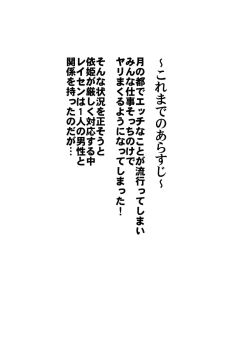 ～これまでのあらすじ～
月の都でエッチなことが流行ってしまい
みんな仕事そっちのけで
ヤリまくるようになってしまった！
そんな状況を正そうと
依姫が厳しく対応する中
レイセンは１人の男性と
関係を持ったのだが…